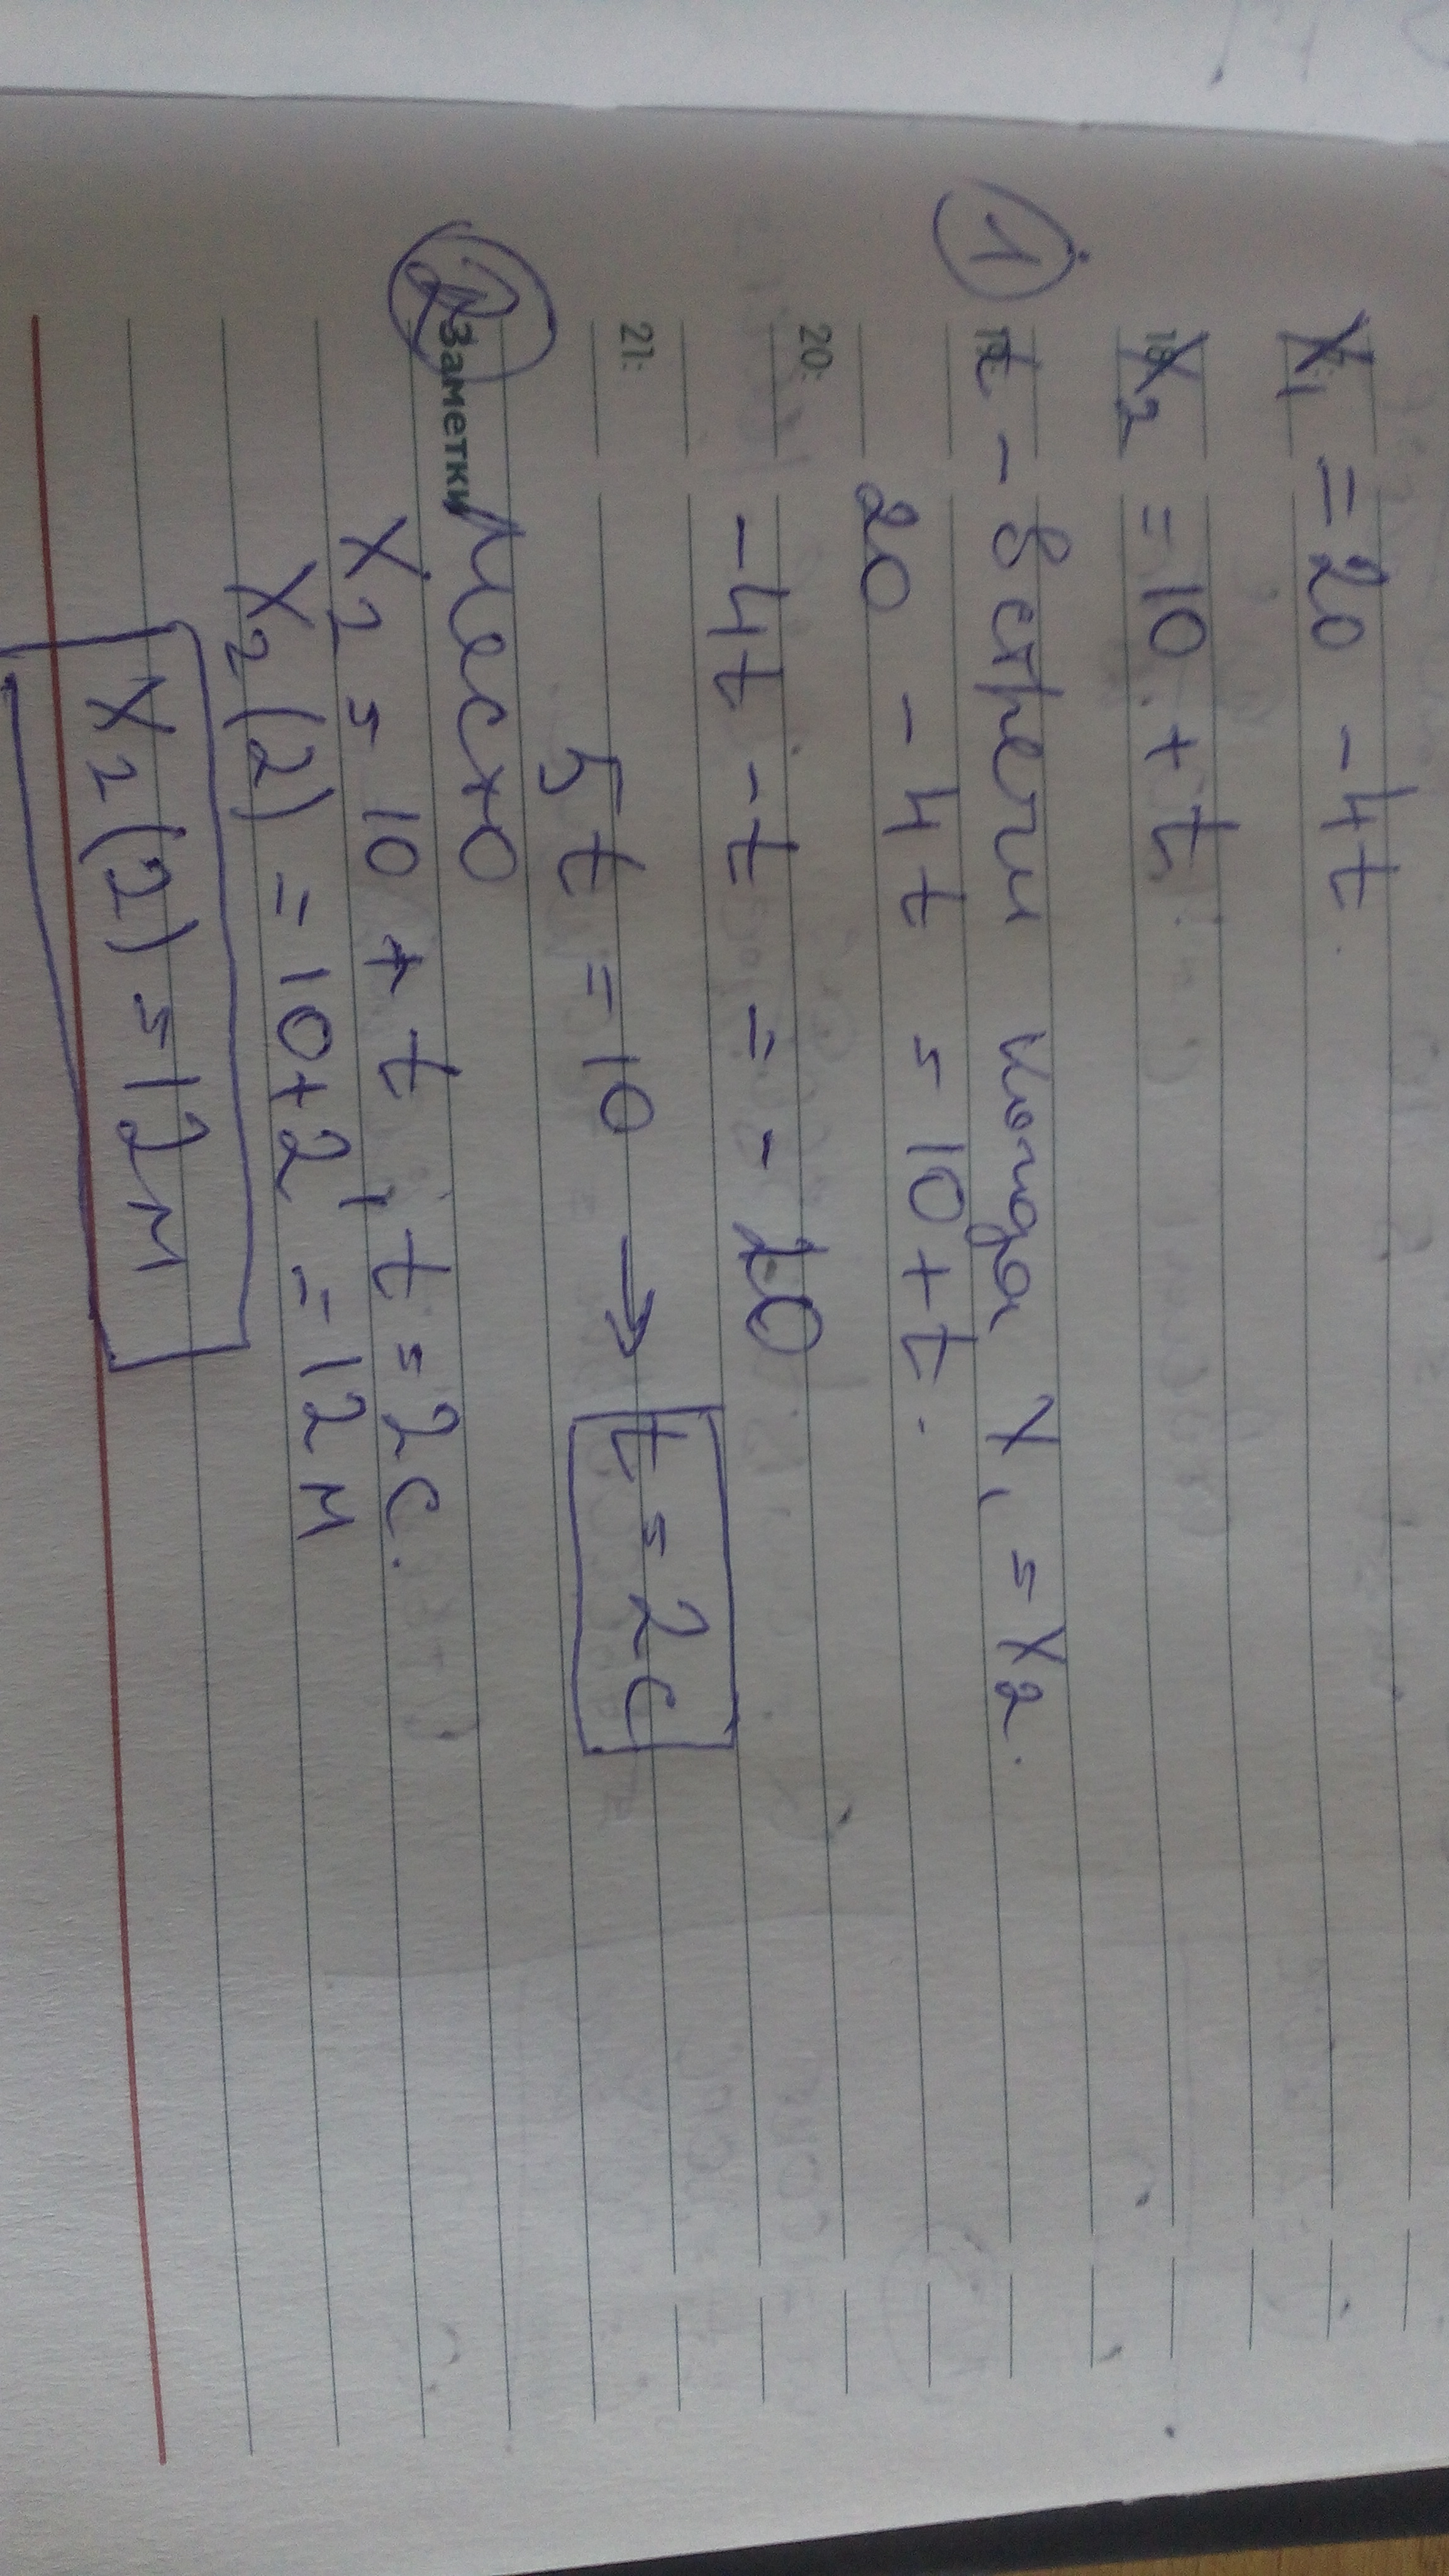 X₁ = 20 - 4t.
X₂ = 10 + t.
① t - встречи когда X₁ = X₂.
20 - 4t = 10 + t.
20:
-4t - t = -10
21:
5t = 10 → t = 2c
② Заметки Место
X₂ = 10 + t, t = 2c.
X₂(2) = 10 + 2 = 12м
X₂(2) = 12м